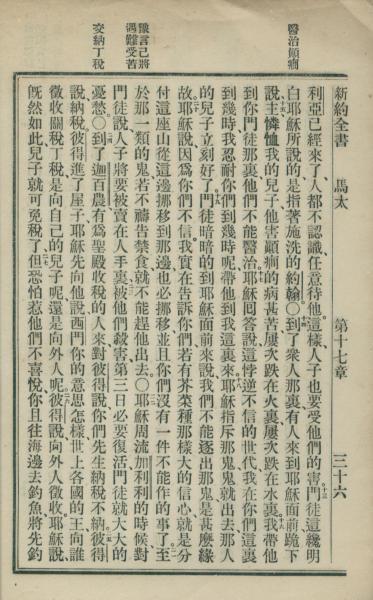 新約全書 馬太 第十七章 三十六
醫治癲癇
豫言己將
遇難受苦
交納丁稅
利亞已經來了人都不認識任意待他這樣人子也要受他們的害門徒這纔明
白耶穌所說的是指著施洗的約翰〇到了衆人那裏有人來到耶穌面前跪下
說主憐恤我的兒子他害顚癇的病甚苦屢次跌在火裏屢次跌在水裏我帶他
到你門徒那裏他們不能醫治耶穌回答說這悖逆不信的世代我在你們這裏
到幾時我忍耐你們到幾時呢帶他到我這裏來耶穌指斥那鬼鬼就出去那人
的兒子立刻好了門徒暗暗的到耶穌面前來說我們不能逐出那鬼是甚麼緣
故耶穌說因爲你們不信我實在告訴你們若有芥菜種那樣大的信心就是分
付這座山從這邊挪移到那邊也必挪移並且你們沒有一件不能作的事了至
於那一類的鬼若不禱告禁食就不能趕他出去〇耶穌周流加利利的時候對
門徒說人子將要被賣在人手裏被他們殺害第三日必要復活門徒就大大的
憂愁〇到了迦百農有爲聖殿收稅的人來對彼得說你們先生納稅不納彼得
說納稅彼得進了屋子耶穌先向他說西門你的意思怎樣世上各國的王向誰
徵收關稅丁稅是向自己的兒子呢還是向外人呢彼得說向外人徵收耶穌說
旣然如此兒子就可免稅了但恐怕惹他們不喜悅你且往海邊去釣魚將先釣